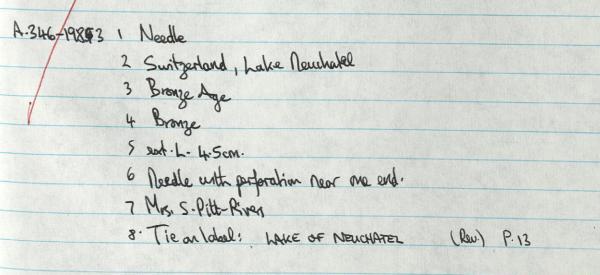 A.346-1983 1 Needle
2 Switzerland, Lake Neuchatel
3 Bronze Age
4 Bronze
5 ext. L. 4.5cm.
6 Needle with perforation near one end.
7 Mrs. S. Pitt-Rivers
8. Tie on label: LAKE OF NEUCHATEL (Rev.) P.13